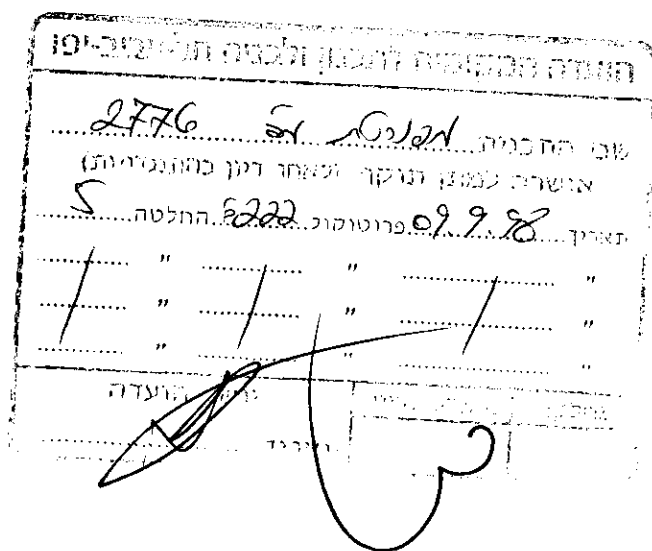 הוועדה המקומית לתכנון ולבניה תל-אביב-יפו
שם התכנית מפורטת מס' 2776
אושרה למתן תוקף (לאחר דיון בהתנגדויות)
תאריך 09.9.98 פרוטוקול 222 החלטה 5
" " "
" " "
" " "
הועדה